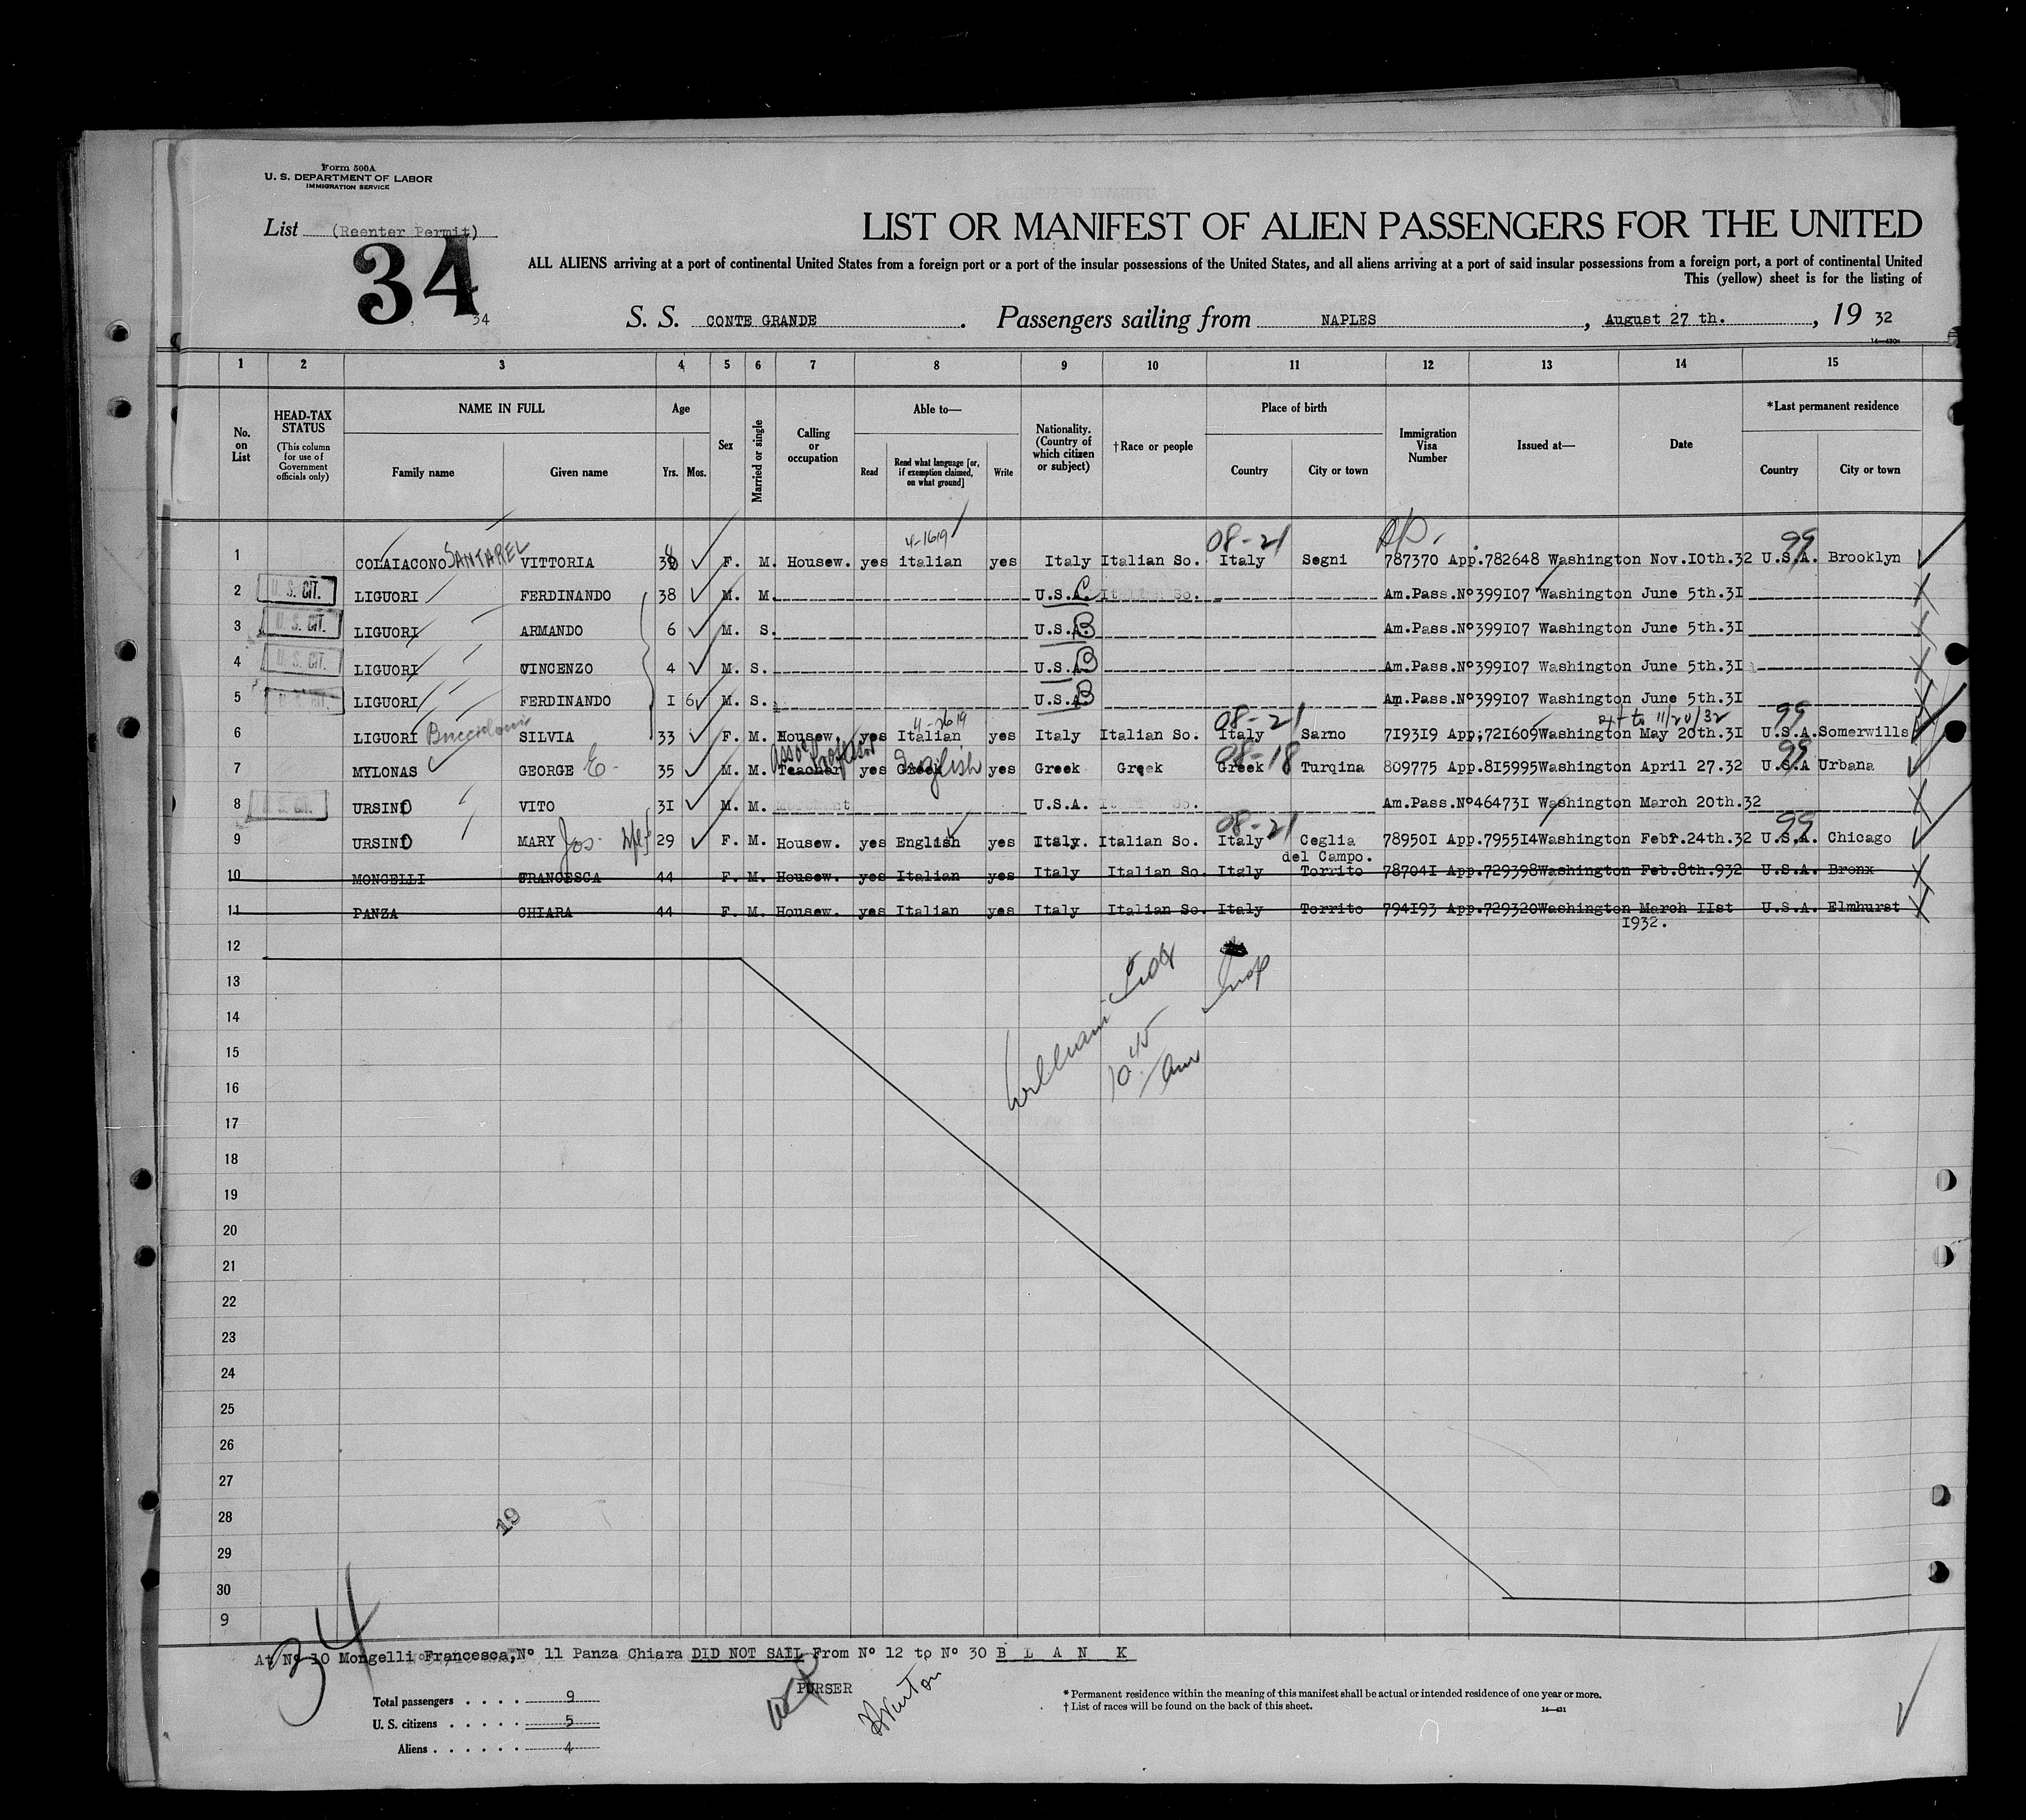 Form 500A
U. S. DEPARTMENT OF LABOR
IMMIGRATION SERVICE
List (Reenter Permit)
34
34
LIST OR MANIFEST OF ALIEN PASSENGERS FOR THE UNITED
ALL ALIENS arriving at a port of continental United States from a foreign port or a port of the insular possessions of the United States, and all aliens arriving at a port of said insular possessions from a foreign port, a port of continental United
This (yellow) sheet is for the listing of
S. S. CONTE GRANDE. Passengers sailing from NAPLES, August 27 th., 19 32
1 2 3 4 5 6 7 8 9 10 11 12 13 14 15
No. on List
HEAD-TAX STATUS
(This column for use of Government officials only)
NAME IN FULL
Family name Given name
Age
Yrs. Mos.
Sex
Married or single
Calling or occupation
Able to—
Read
Read what language [or, if exemption claimed, on what ground]
Write
Nationality. (Country of which citizen or subject)
†Race or people
Place of birth
Country City or town
Immigration Visa Number
Issued at—
Date
*Last permanent residence
Country City or town
4-1619 08-21 99
1 COLAIACONO SANTAREL VITTORIA F. M. Housew. yes italian yes Italy Italian So. Italy Segni 787370 App.782648 Washington Nov.10th.32 U.S.A. Brooklyn
2 U.S. CIT. LIGUORI FERDINANDO 38 M. M. U.S.A. Italian So. Am.Pass.Nº399107 Washington June 5th.31
3 U.S. CIT. LIGUORI ARMANDO 6 M. S. U.S.A. B Am.Pass.Nº399107 Washington June 5th.31
4 U.S. CIT. LIGUORI VINCENZO 4 M. S. U.S.A. B Am.Pass.Nº399107 Washington June 5th.31
5 U.S. CIT. LIGUORI FERDINANDO 1 6 M. S. U.S.A. B Am.Pass.Nº399107 Washington June 5th.31
4-2619 08-21 to 11/20/32 99
6 LIGUORI SILVIA 33 F. M. Housew. yes Italian yes Italy Italian So. Italy Sarno 719319 App;721609 Washington May 20th.31 U.S.A. Somerwills
Asso Professor English 08-18 99
7 MYLONAS GEORGE E. 35 M. M. Teacher yes Greek yes Greek Greek Greek Turqina 809775 App.815995 Washington April 27.32 U.S.A Urbana
8 U.S. CIT. URSINO VITO 31 M. M. U.S.A. Am.Pass.Nº464731 Washington March 20th.32
08-21 99
9 URSINO MARY Jos. 29 F. M. Housew. yes English yes Italy. Italian So. Italy Ceglia del Campo. 789501 App.795514 Washington Febr.24th.32 U.S.A. Chicago
10 MONGELLI FRANCESCA 44 F. M. Housew. yes Italian yes Italy Italian So. Italy Torrito 787041 App.729398 Washington Feb.8th.932 U.S.A. Bronx
11 PANZA CHIARA 44 F. M. Housew. yes Italian yes Italy Italian So. Italy Torrito 794193 App.729320 Washington March 11st 1932. U.S.A. Elmhurst
12
13
14
15
16
17
18
19
20
21
22
23
24
25
26
27
28
29
30
9
William
10 45 am
Insp
19
34
At Nº 10 Mongelli Francesca, Nº 11 Panza Chiara DID NOT SAIL From Nº 12 to Nº 30 B L A N K
PURSER
Total passengers . . . . 9
U. S. citizens . . . . . 5
Aliens . . . . . . 4
* Permanent residence within the meaning of this manifest shall be actual or intended residence of one year or more.
† List of races will be found on the back of this sheet.
14—431